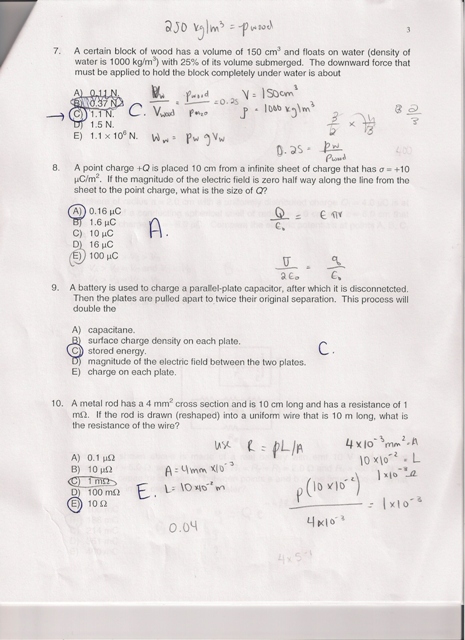 250 kg/m³ = ρwood
3
7. A certain block of wood has a volume of 150 cm³ and floats on water (density of
water is 1000 kg/m³) with 25% of its volume submerged. The downward force that
must be applied to hold the block completely under water is about
A) 0.11 N.
B) 0.37 N.
C) 1.1 N. C.
D) 1.5 N.
E) 1.1 × 10⁶ N.
= ρwood = 0.25
V = 150cm³
ρ = 1000 kg/m³
Ww = ρw g Vw
0.25 = ρw
ρwood
8. A point charge +Q is placed 10 cm from a infinite sheet of charge that has σ = +10
μC/m². If the magnitude of the electric field is zero half way along the line from the
sheet to the point charge, what is the size of Q?
A) 0.16 μC
B) 1.6 μC
C) 10 μC
D) 16 μC
E) 100 μC
A.
Q/ε₀ =
σ/2ε₀ = q/ε₀
9. A battery is used to charge a parallel-plate capacitor, after which it is disconnetcted.
Then the plates are pulled apart to twice their original separation. This process will
double the
A) capacitane.
B) surface charge density on each plate.
C) stored energy. C.
D) magnitude of the electric field between the two plates.
E) charge on each plate.
10. A metal rod has a 4 mm² cross section and is 10 cm long and has a resistance of 1
mΩ. If the rod is drawn (reshaped) into a uniform wire that is 10 m long, what is
the resistance of the wire?
A) 0.1 μΩ
B) 10 μΩ
C) 1 mΩ
D) 100 mΩ
E) 10 Ω
E.
use R = ρL/A
4×10⁻³ mm² = A
10×10⁻² = L
1×10⁻³ Ω
A = 4mm ×10⁻³
L = 10×10⁻² m
ρ(10×10⁻²)/4×10⁻³ = 1×10⁻³
0.04